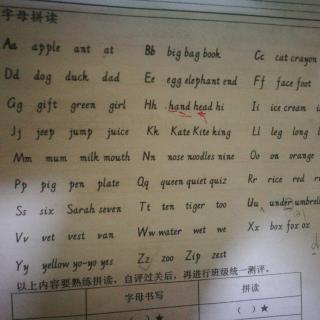 字母拼读
Aa apple ant at Bb big bag book Cc cat crayon
Dd dog duck dad Ee egg elephant end Ff face foot
Gg gift green girl Hh hand head hi Ii ice cream
Jj jeep jump juice Kk Kate Kite king Ll leg long
Mm mum milk mouth Nn nose noodles nine Oo on orange
Pp pig pen plate Qq queen quiet quiz Rr rice red
Ss six Sarah seven Tt ten tiger too Uu under umbrell
Vv vet vest van Ww water wet we Xx box fox ox
Yy yellow yo-yo yes Zz zoo Zip zest
以上内容要熟练拼读，自评过关后，再进行班级统一测评。
字母书写 拼读
( )★ ( )★